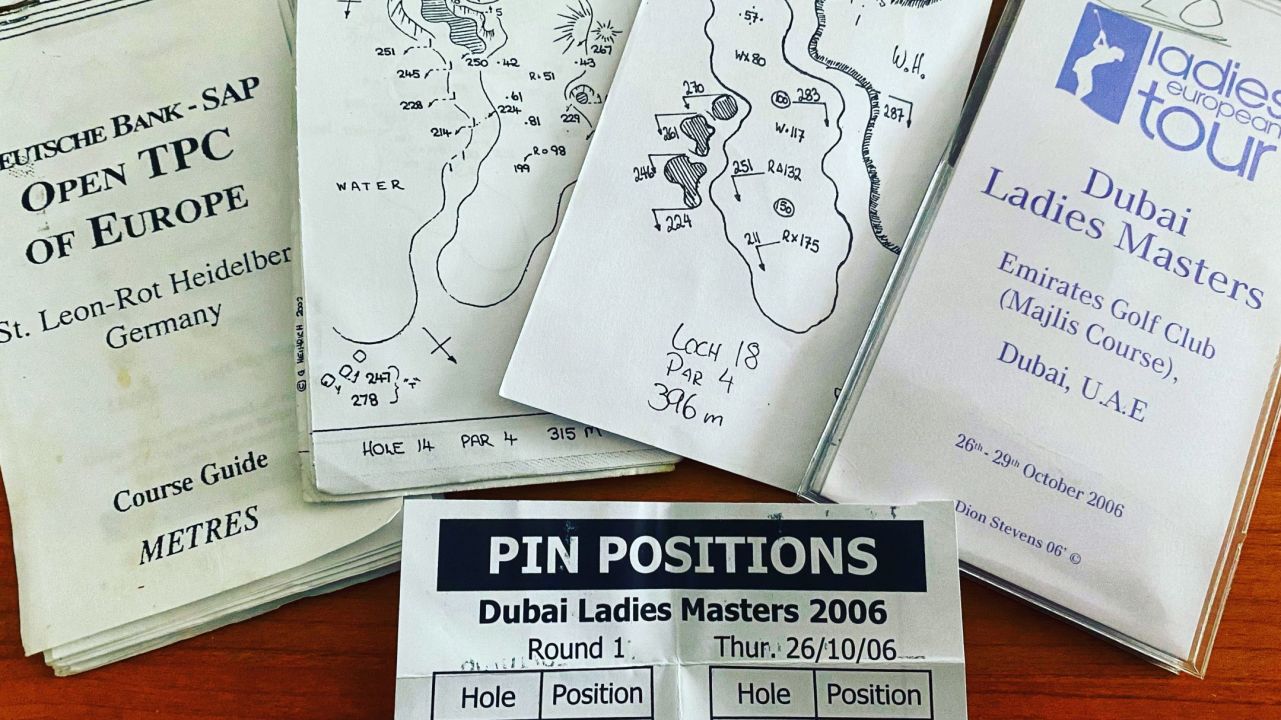 DEUTSCHE BANK - SAP
OPEN TPC
OF EUROPE
St. Leon-Rot Heidelber
Germany
Course Guide
METRES
5
251
250
42
267
43
245
R.51
228
.61
224
.81
229
214
R098
199
WATER
247
278
HOLE 14 PAR 4 315 M
.57.
WX80
W.H.
270
100
283
287
261
W.117
246
251
R∆132
150
224
211
RX175
LOCH 18
PAR 4
396 m
20
ladies
european
tour
Dubai
Ladies Masters
Emirates Golf Club
(Majlis Course),
Dubai, U.A.E
26th - 29th October 2006
Dion Stevens 06' ©
PIN POSITIONS
Dubai Ladies Masters 2006
Round 1 Thur. 26/10/06
Hole Position Hole Position